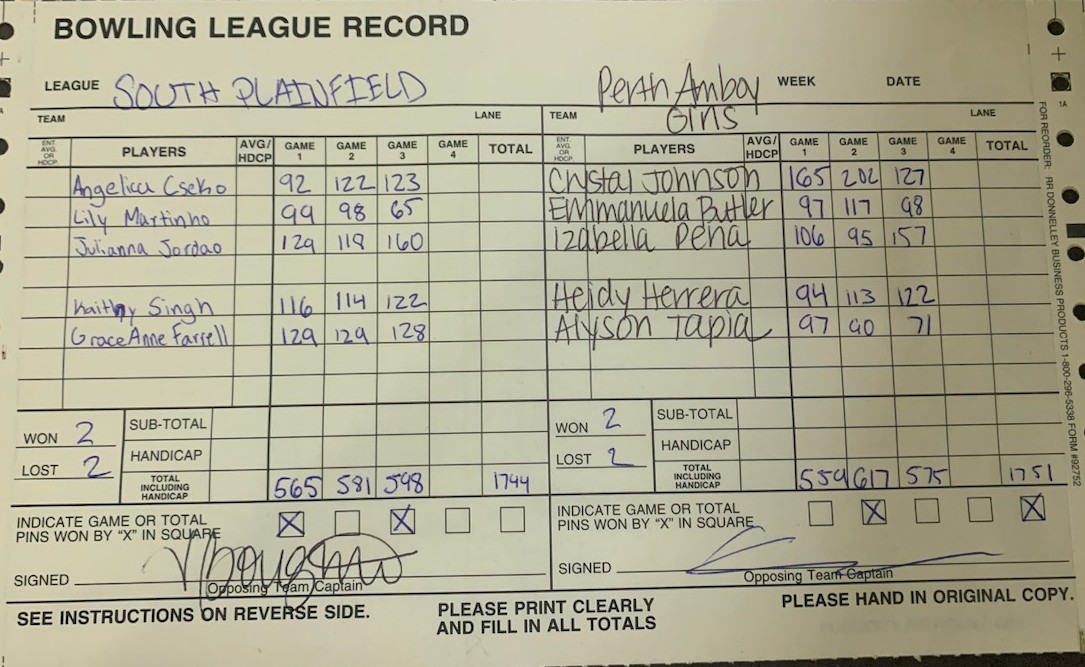 BOWLING LEAGUE RECORD
LEAGUE SOUTH PLAINFIELD Perth Amboy WEEK DATE
TEAM LANE TEAM Girls LANE
ENT. AVG. OR HDCP. PLAYERS AVG/ HDCP GAME 1 GAME 2 GAME 3 GAME 4 TOTAL ENT. AVG. OR HDCP. PLAYERS AVG/ HDCP GAME 1 GAME 2 GAME 3 GAME 4 TOTAL
Angelica Cseko 92 122 123 Crystal Johnson 165 202 127
Lily Martinho 99 98 65 Emmanuela Butler 97 117 98
Julianna Jordao 129 118 160 Izabella Pena 106 95 157
Kaithy Singh 116 114 122 Heidy Herrera 94 113 122
GraceAnne Farrell 129 129 128 Alyson Tapia 97 90 71
WON 2 SUB-TOTAL WON 2 SUB-TOTAL
LOST 2 HANDICAP LOST 2 HANDICAP
TOTAL INCLUDING HANDICAP 565 581 598 1744 TOTAL INCLUDING HANDICAP 559 617 575 1751
INDICATE GAME OR TOTAL PINS WON BY "X" IN SQUARE X X INDICATE GAME OR TOTAL PINS WON BY "X" IN SQUARE X X
SIGNED SIGNED
Opposing Team Captain Opposing Team Captain
SEE INSTRUCTIONS ON REVERSE SIDE. PLEASE PRINT CLEARLY AND FILL IN ALL TOTALS PLEASE HAND IN ORIGINAL COPY.
1A
FOR REORDER: RR DONNELLEY BUSINESS PRODUCTS 1-800-296-5338 FORM #92752